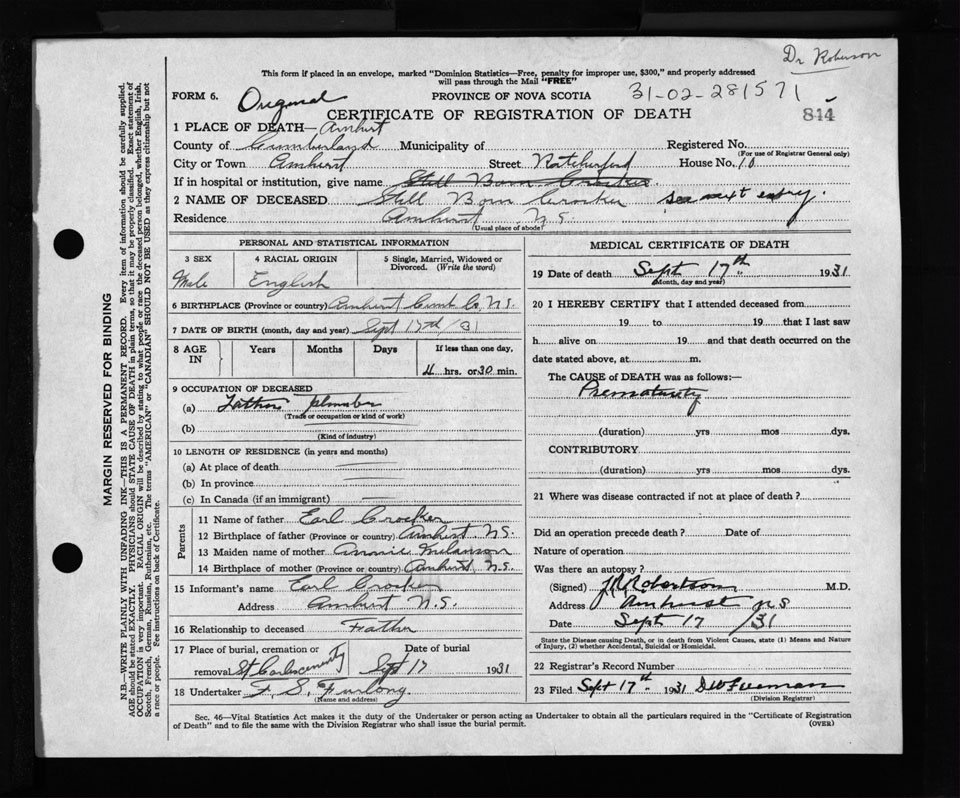 Dr Roberson
This form if placed in an envelope, marked "Dominion Statistics—Free, penalty for improper use, $300," and properly addressed
will pass through the Mail "FREE"
FORM 6. Original PROVINCE OF NOVA SCOTIA 31-02-281571
CERTIFICATE OF REGISTRATION OF DEATH 844
1 PLACE OF DEATH— Amherst
County of Cumberland Municipality of Registered No.
(For use of Registrar General only)
City or Town Amherst Street House No. 10
If in hospital or institution, give name Still Born Crocker
2 NAME OF DECEASED Still Born Crocker see next entry.
Residence Amherst N.S.
(Usual place of abode)
PERSONAL AND STATISTICAL INFORMATION
3 SEX 4 RACIAL ORIGIN 5 Single, Married, Widowed or
Divorced. (Write the word)
Male English
6 BIRTHPLACE (Province or country) Amherst Cumb Co, N.S.
7 DATE OF BIRTH (month, day and year) Sept 17th / 31
8 AGE IN Years Months Days If less than one day,
4 hrs. or 30 min.
9 OCCUPATION OF DECEASED
(a) Father plumber
(Trade or occupation or kind of work)
(b)
(Kind of industry)
10 LENGTH OF RESIDENCE (in years and months)
(a) At place of death
(b) In province
(c) In Canada (if an immigrant)
Parents
11 Name of father Earl Crocker
12 Birthplace of father (Province or country) Amherst N.S.
13 Maiden name of mother Annie Melanson
14 Birthplace of mother (Province or country) Amherst, N.S.
15 Informant's name Earl Crocker
Address Amherst N.S.
16 Relationship to deceased Father
17 Place of burial, cremation or Date of burial
removal St Carles cemetry Sept 17 1931
18 Undertaker F. S. Furlong.
(Name and address)
MEDICAL CERTIFICATE OF DEATH
19 Date of death Sept 17th 1931
(Month, day and year)
20 I HEREBY CERTIFY that I attended deceased from
19 to 19 that I last saw
h alive on 19 and that death occurred on the
date stated above, at m.
The CAUSE of DEATH was as follows:—
Prematurity
(duration) yrs mos dys.
CONTRIBUTORY
(duration) yrs mos dys.
21 Where was disease contracted if not at place of death?
Did an operation precede death? Date of
Nature of operation
Was there an autopsy?
(Signed) J.R. Robertson M.D.
Address Amherst N S
Date Sept 17 / 31
State the Disease causing Death, or in death from Violent Causes, state (1) Means and Nature
of Injury, (2) whether Accidental, Suicidal or Homicidal.
22 Registrar's Record Number
23 Filed Sept 17th 1931
(Division Registrar)
Sec. 46—Vital Statistics Act makes it the duty of the Undertaker or person acting as Undertaker to obtain all the particulars required in the "Certificate of Registration
of Death" and to file the same with the Division Registrar who shall issue the burial permit. (OVER)
MARGIN RESERVED FOR BINDING
N.B.—WRITE PLAINLY WITH UNFADING INK—THIS IS A PERMANENT RECORD. Every item of information should be carefully supplied.
AGE should be stated EXACTLY. PHYSICIANS should STATE CAUSE OF DEATH in plain terms, so that it may be properly classified. Exact statement of
OCCUPATION is very important. RACIAL ORIGIN will be described by stating to what people or race the deceased person belonged, whether English, Irish,
Scotch, French, German, Russian, Ruthenian, etc. The terms "AMERICAN" or "CANADIAN" SHOULD NOT BE USED as they express citizenship but not
a race or people. See instructions on back of Certificate.